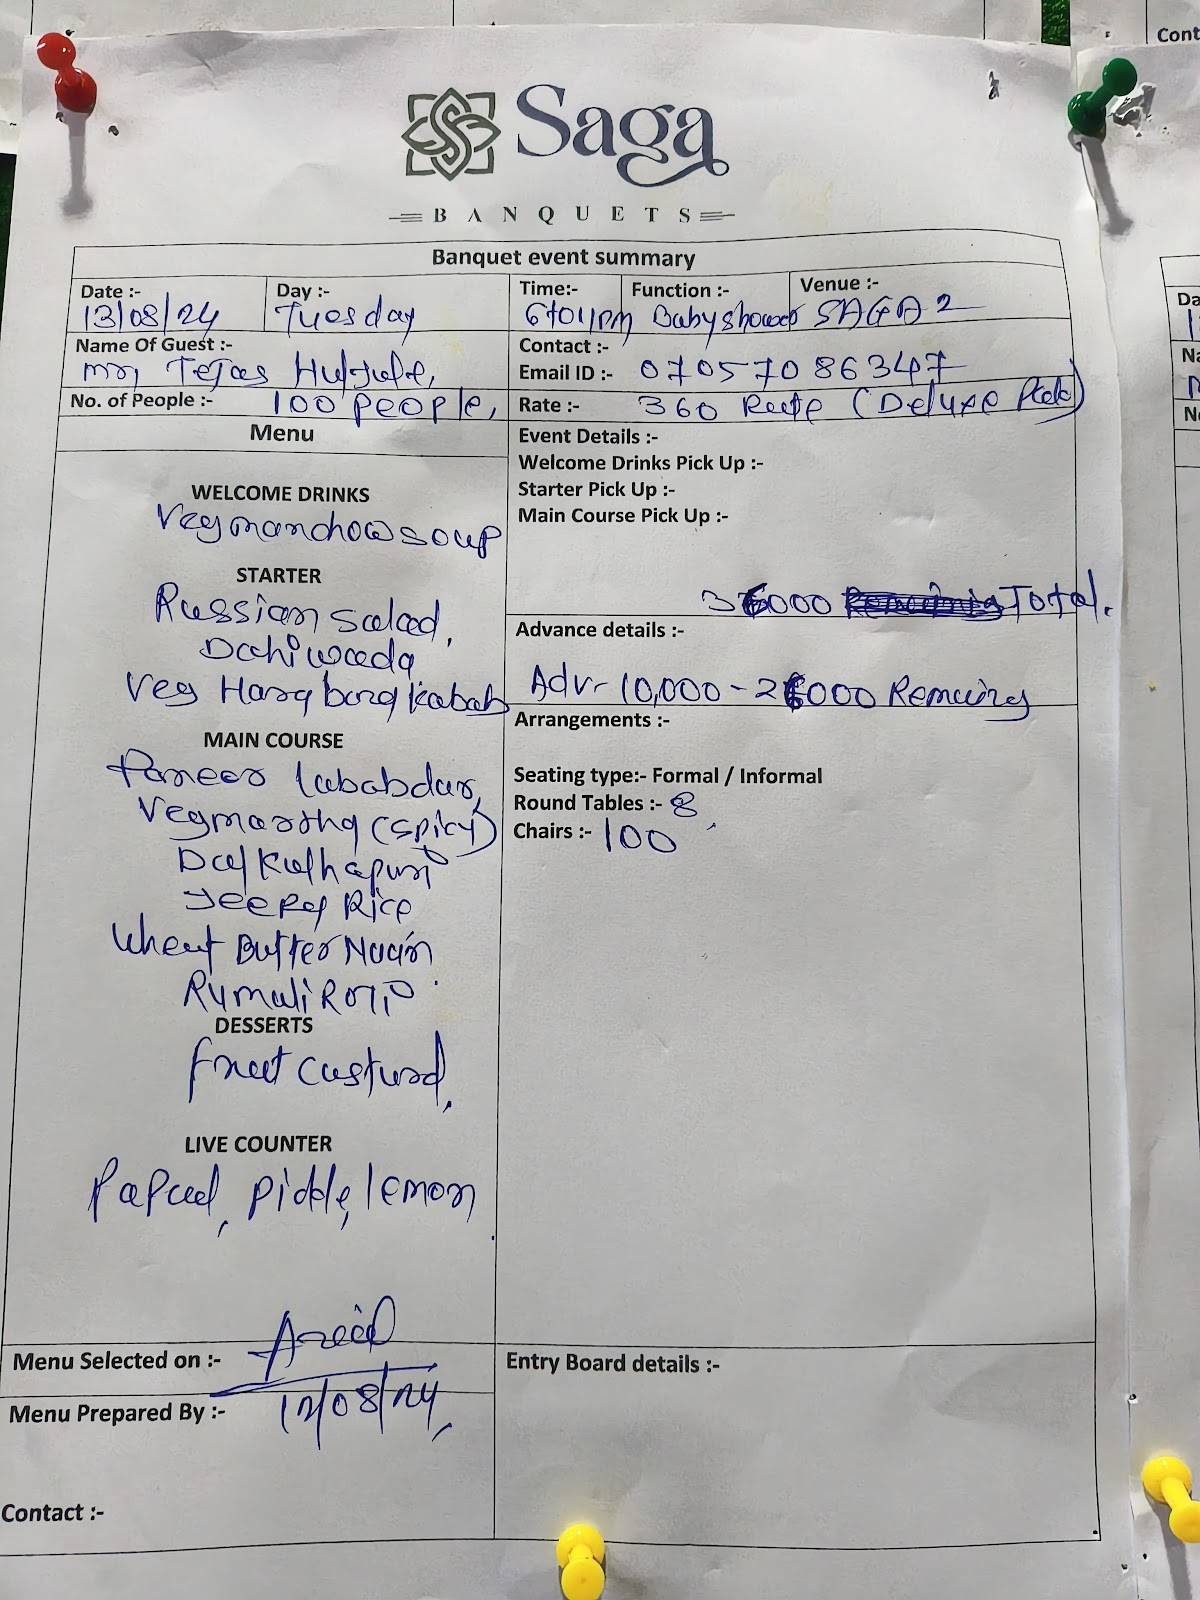 Cont
Saga
BANQUETS
Banquet event summary
Date :- 13/08/24
Day :- Tuesday
Time:-
Function :- Babyshower
Venue :- SAGA 2
Name Of Guest :- mr, Tejas
Contact :-
Email ID :- 07057086347
No. of People :- 100 people,
Rate :- 360 Rate (Deluxe
Menu
WELCOME DRINKS
Veg manchow soup
STARTER
Russian salad,
Dahi wada
Veg Hara bara kabab
MAIN COURSE
Paneer lababdar,
Veg maratha (spicy)
Dal Kolhapuri
Jeera Rice
Wheat Butter Naan
Rumali Roti
DESSERTS
Fruit custurd,
LIVE COUNTER
Papad, pickle, lemon
Event Details :-
Welcome Drinks Pick Up :-
Starter Pick Up :-
Main Course Pick Up :-
36000 Total.
Advance details :-
Adv- 10,000 - 26000 Remaining
Arrangements :-
Seating type:- Formal / Informal
Round Tables :- 8
Chairs :- 100
Menu Selected on :-
12/08/24,
Menu Prepared By :-
Contact :-
Entry Board details :-
Da
Na
No